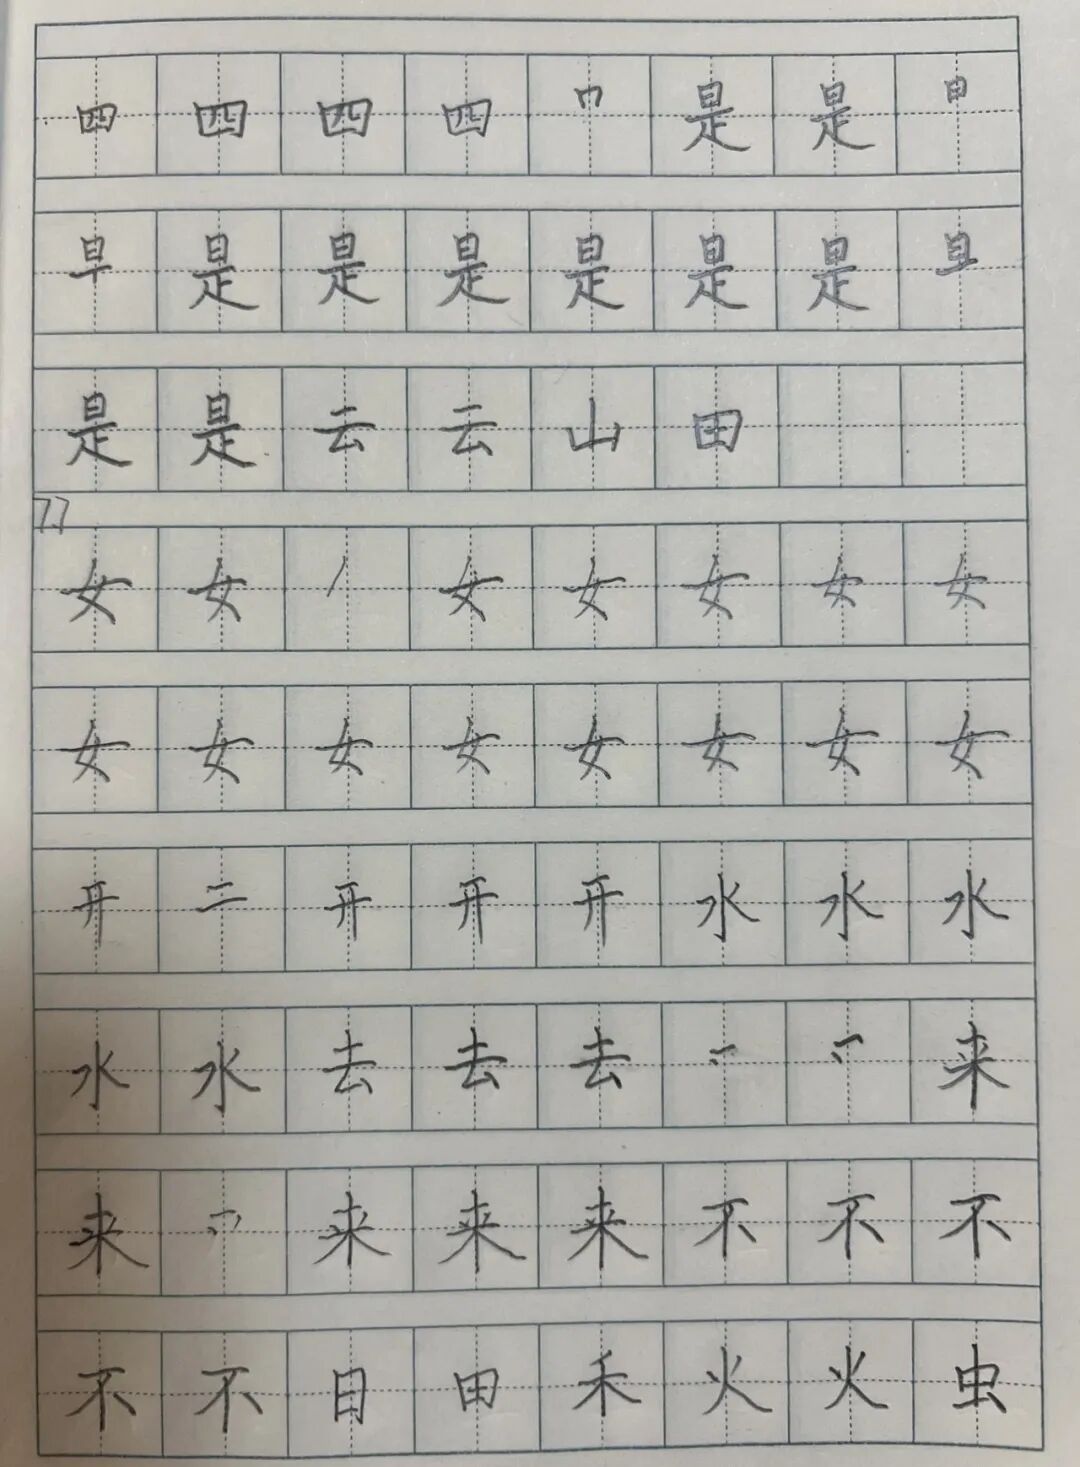 四四四四是是
是是是是是是
是是云云山田
77
女女女女女女女
女女女女女女女女
开二开开开水水水
水水去去去来
来来来来不不不
不不目田禾火火虫